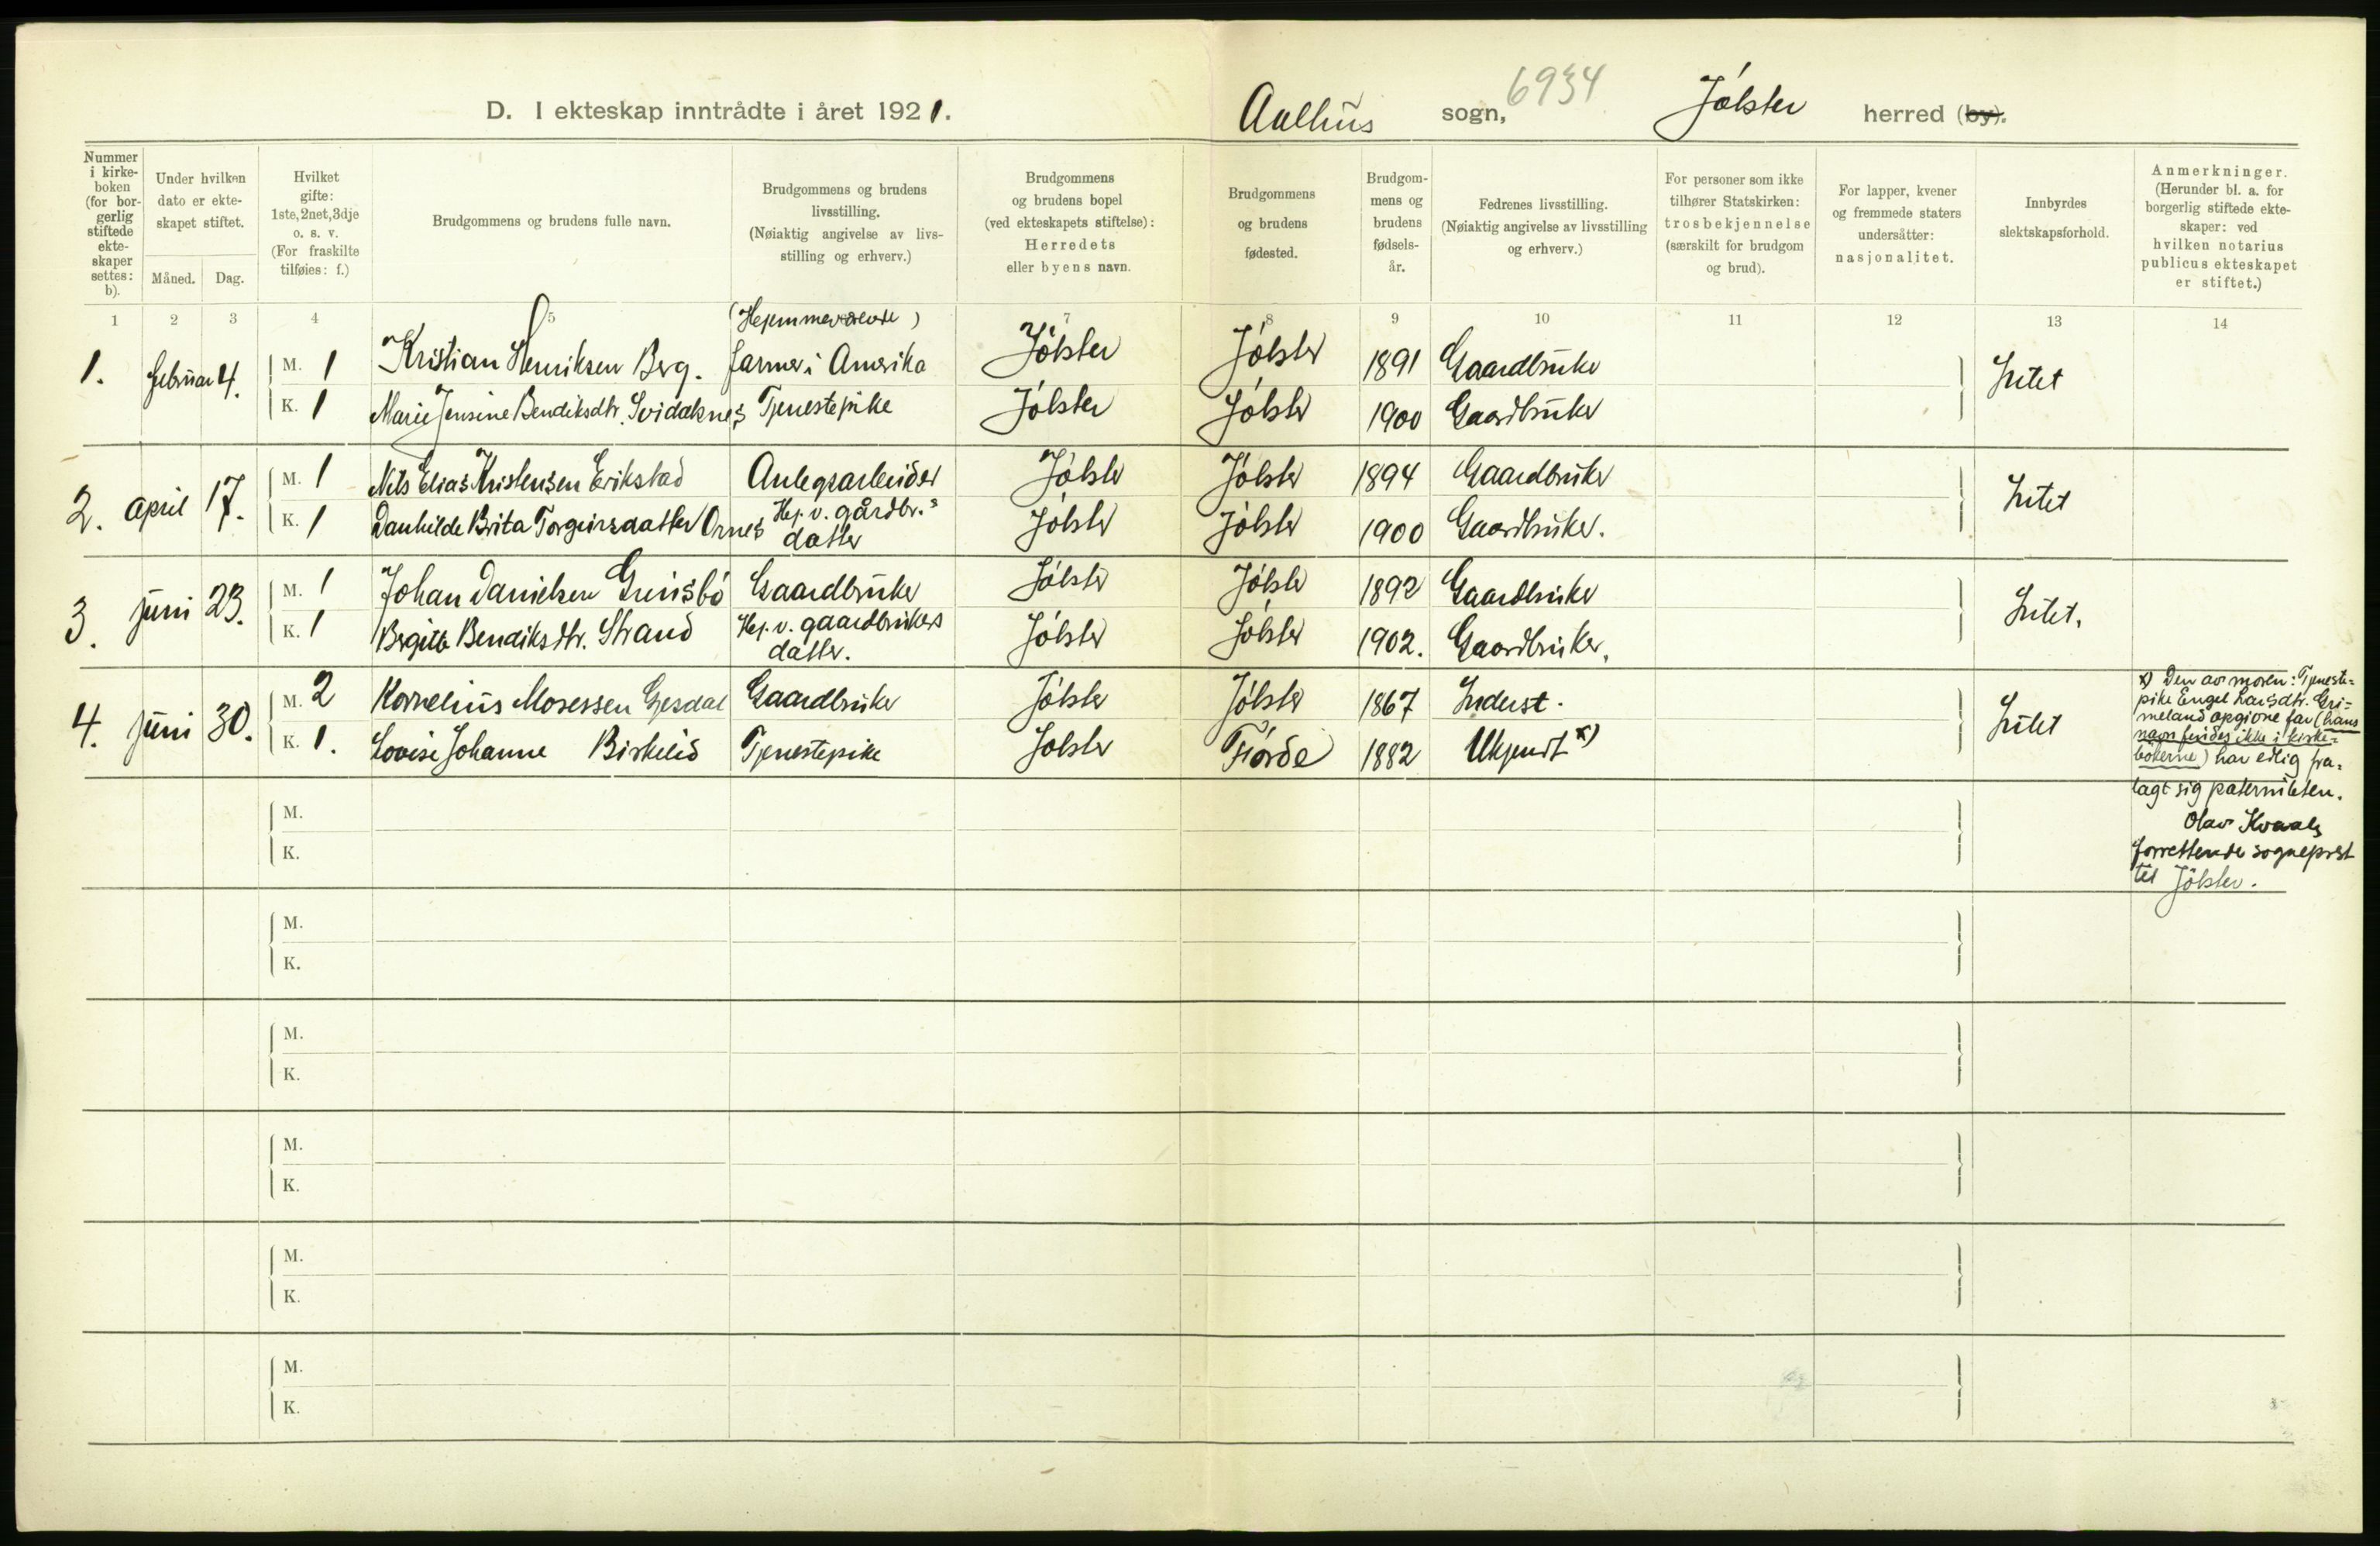 D. I ekteskap inntrådte i året 1921.
Aalhus sogn, 6934 Jølster herred (by).
Nummer i kirkeboken (for borgerlig stiftede ekteskaper settes: b).
Under hvilken dato er ekteskapet stiftet.
Måned. Dag.
Hvilket gifte: 1ste, 2net, 3dje o. s. v. (For fraskilte tilføies: f.)
Brudgommens og brudens fulle navn.
Brudgommens og brudens livsstilling. (Nøiaktig angivelse av livsstilling og erhverv.)
Brudgommens og brudens bopel (ved ekteskapets stiftelse): Herredets eller byens navn.
Brudgommens og brudens fødested.
Brudgommens og brudens fødselsår.
Fedrenes livsstilling. (Nøiaktig angivelse av livsstilling og erhverv.)
For personer som ikke tilhører Statskirken: trosbekjennelse (særskilt for brudgom og brud).
For lapper, kvener og fremmede staters undersåtter: nasjonalitet.
Innbyrdes slektskapsforhold.
Anmerkninger. (Herunder bl. a. for borgerlig stiftede ekteskaper: ved hvilken notarius publicus ekteskapet er stiftet.)
1 2 3 4 5 7 8 9 10 11 12 13 14
1. Februar 4. M. 1 Kristian Henriksen Berg. (Hejemmeværende) farmer i Amerika Jølster Jølster 1891 Gaardbruker Intet
K. 1 Marie Jensine Bendiksdtr. Svidalsnes Tjenestepike Jølster Jølster 1900 Gaardbruker
2. April 17. M. 1 Nils Elias Kristensen Erikstad Anlegsarbeider Jølster Jølster 1894 Gaardbruker Intet
K. 1 Danhilde Brita Torgeirsdatter Ornes Hej. v. gårdbr.s datter Jølster Jølster 1900 Gaardbruker.
3. Juni 23. M. 1 Johan Danielsen Grimsbø Gaardbruker Jølster Jølster 1892 Gaardbruker Intet.
K. 1 Birgitte Bendiksdtr. Strand Hej. v. gaardbrukers datter. Jølster Jølster 1902. Gaardbruker.
4. Juni 30. M. 2 Kornelius Mosessen Gjesdal Gaardbruker Jølster Jølster 1867 Inderst. Intet
K. 1. Lovise Johanne Birkelid Tjenestepike Jølster Førde 1882 Ukjendt x)
x) Den av moren: Tjeneste-
pike Engel Larsdtr. Gri-
meland opgivne far (hans
navn findes ikke i kirke-
bøkerne) har edlig fra-
lagt sig paterniteten.
Olav Kvaale
forrettende sogneprest
til Jølster.
M.
K.
M.
K.
M.
K.
M.
K.
M.
K.
M.
K.